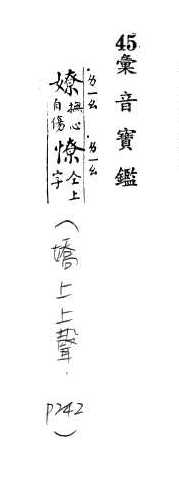 45.彙音寶鑑
·ㄌㄧㄠ ·ㄌㄧㄠ
嫽撫心自傷憭仝上字(嬌上上聲. P242)